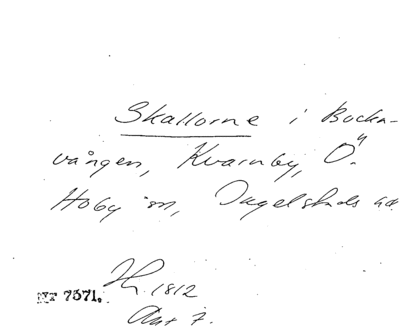 Skallorne i Bocka-
vången, Kvarnby, Ö.
Hoby sn, Ingelstads hd.
Hr 1812
NT 7571.
Akt 7.